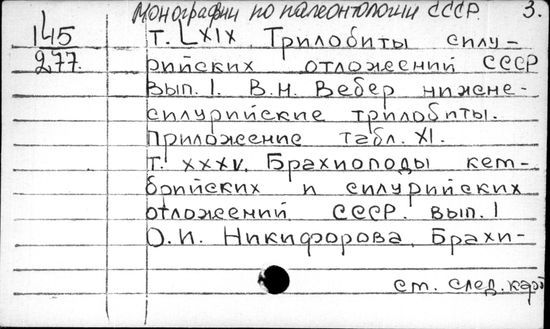 Монографии по палеонтологии СССР. 3.
145
277.
Т. LXIX. Трилобиты силу-
рийских отложений СССР
вып. 1. В.Н. Вебер нижне-
силурийские трилобиты.
Приложение табл. XI.
Т. XXXV. Брахиоподы кем-
брийских и силурийских
отложений СССР. вып. 1
О.И. Никифорова. Брахи-
см. след. карт